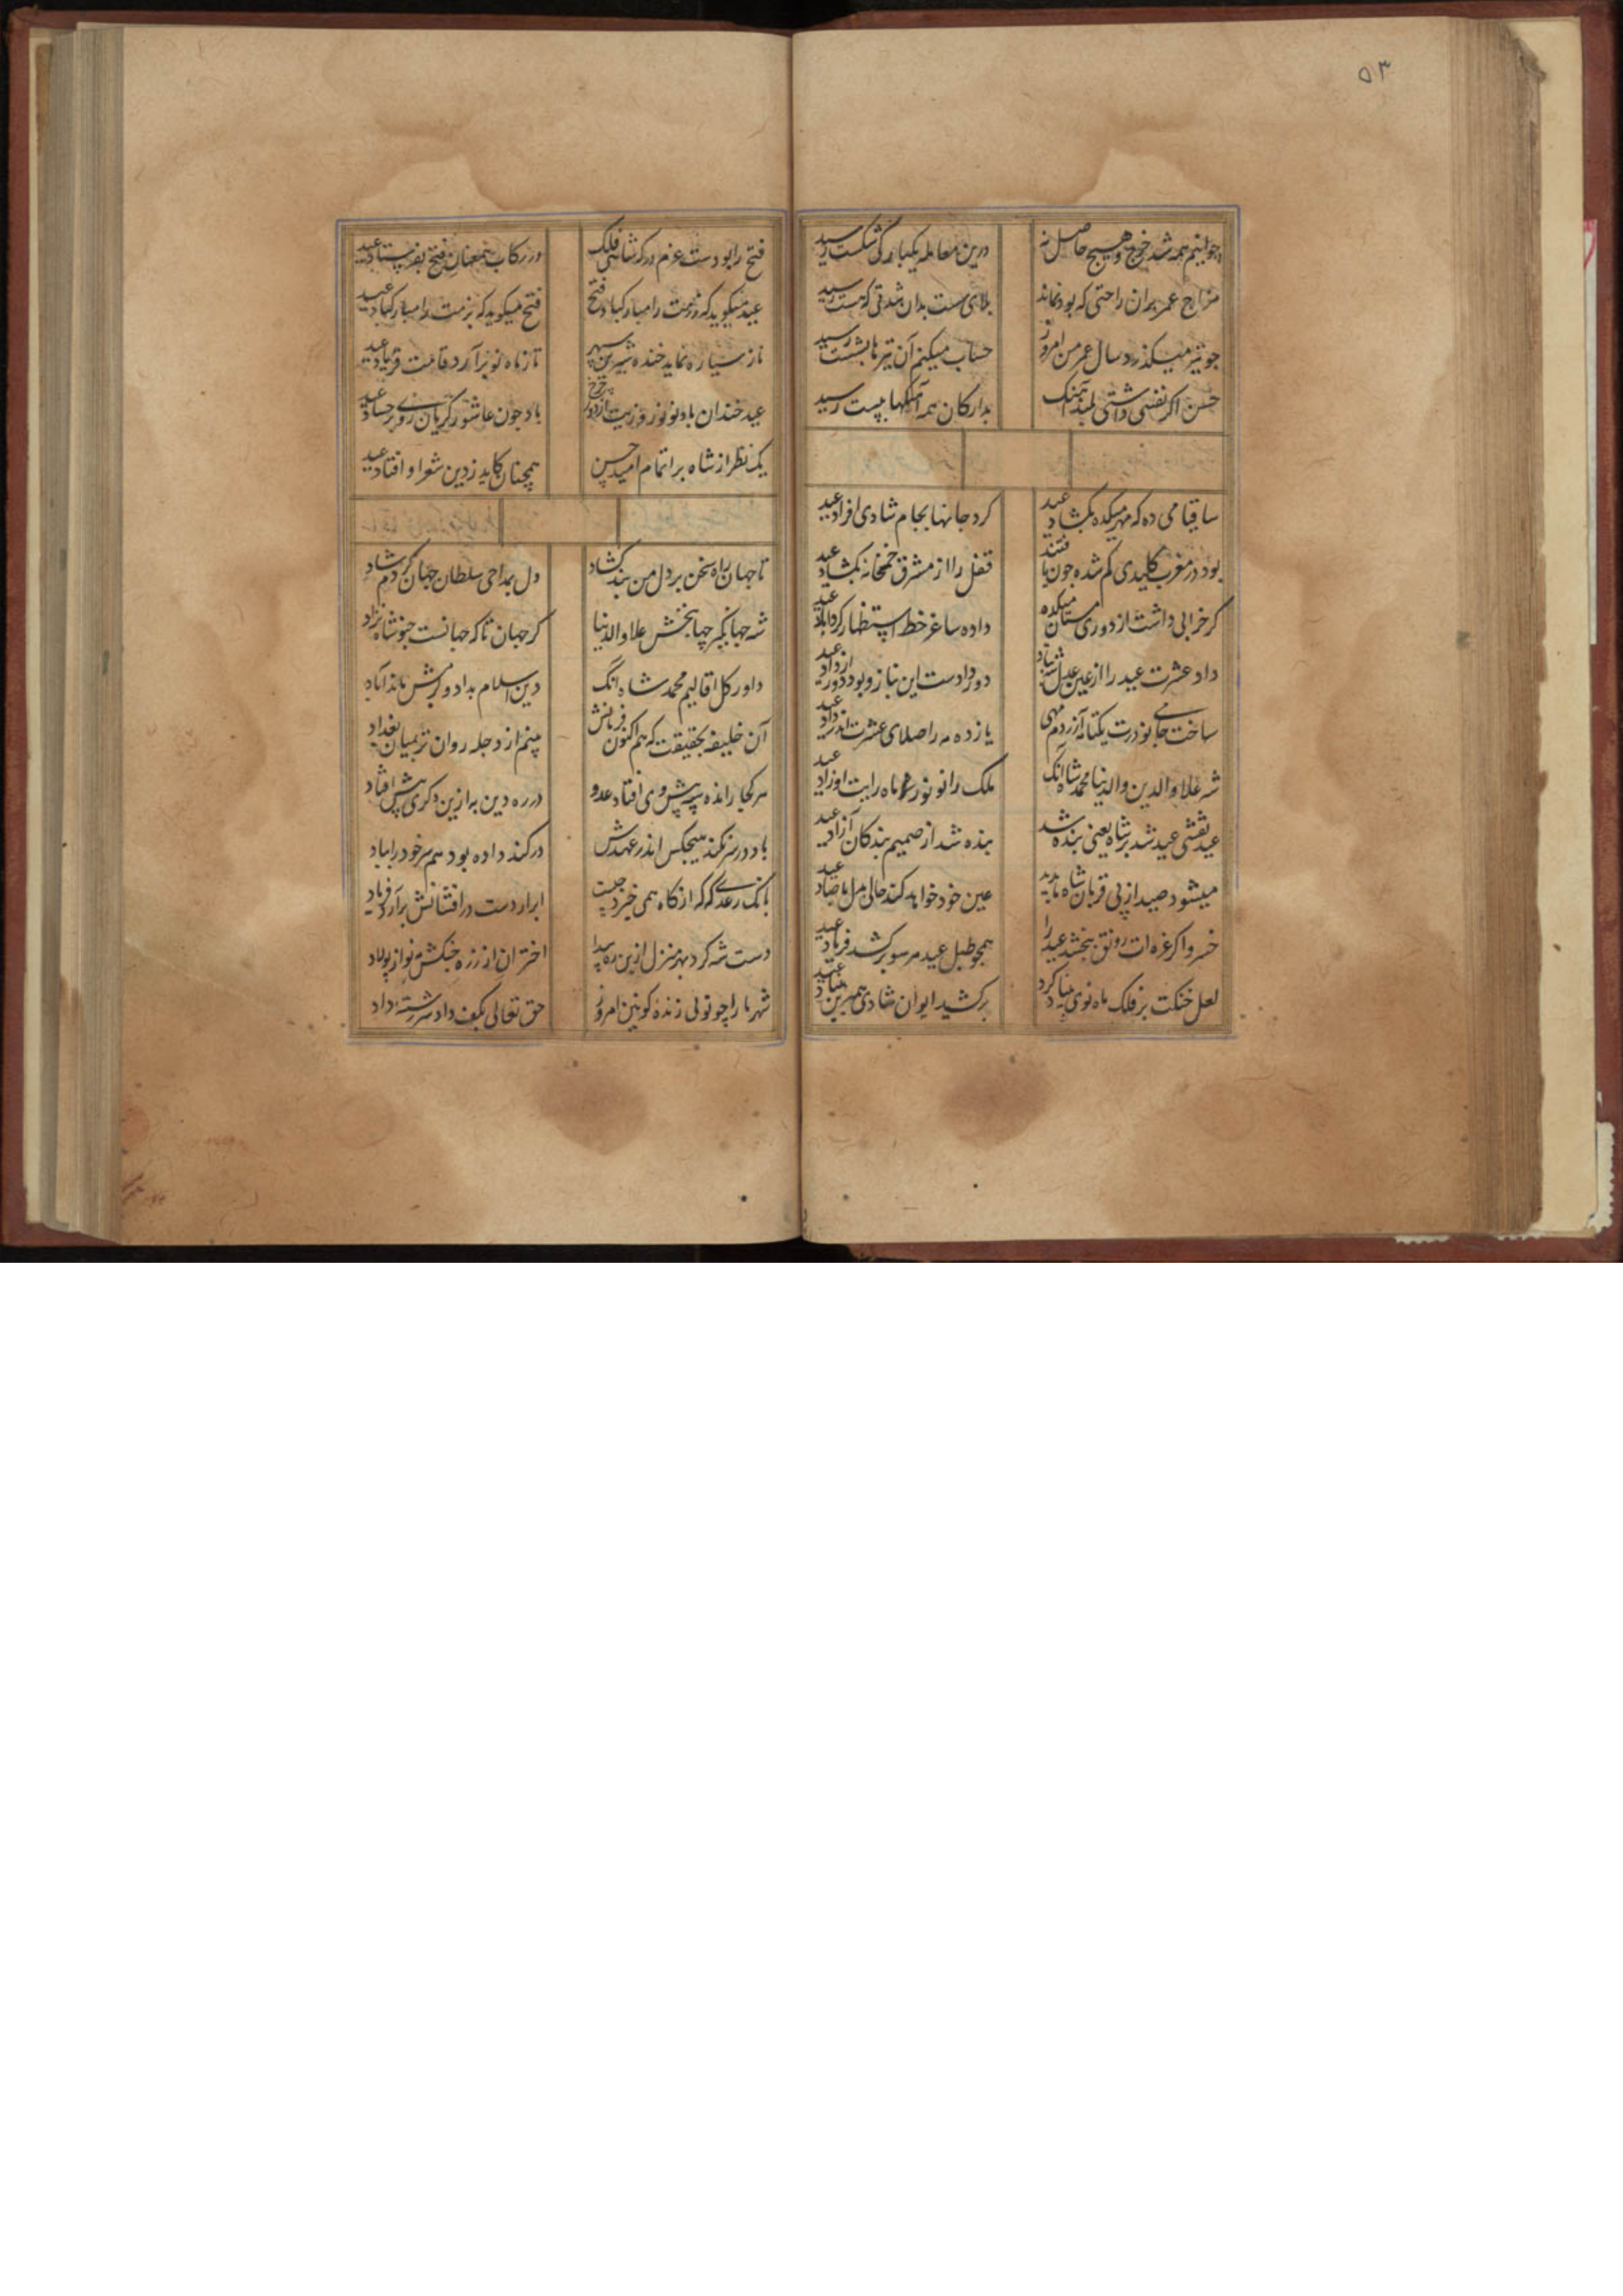 ۵۳
جوانیم همه شد خرج و هیچ حاصل نه
درین معامله یکبارگی شکست رسید
مزاج عمر بران راحتی که بود نماند
بلای ست بدان شدتی که هست رسید
جو تیر میکذرد سال عمر من امروز
حساب میکنم آن تیر تا بشست رسید
حسن اکر نفسی داشتی بلند آهنک
بدارکان همه آهنکها بپست رسید
ساقیا می ده که مهر میکده بکشاد عید
کرد جانها بجام شادی افزاد عید
بود در مغرب کلیدی کم شده جون یافتند
قفل را از مشرق خمخانه بکشاد عید
کر خرابی داشت از دوری مستان میکده
داده ساغر خط استظهار کرد آباد عید
داد عشرت عید را از عین عدل
دور دادست این نیاز و بود دور از داد عید
ساخت جامی نو درت یکتا نه آزردم مهی
یازده مه را صلای عشرت اندر داد عید
شه علاء الدین والدنیا محمد شاه آنک
ملک را نو نور غره ماه رایت او زاد عید
عید نقشی عید شد بر شاه یعنی بنده شد
بنده شد از صمیم بندکان آزاد عید
میشود صید از پی قربان شاه باید
عین خود خواهد کند حالی مل با صاد عید
خسروا کر غره ات رونق نبخشد عید را
همجو طبل عید هر سو برکشد فریاد عید
لعل خنکت بر فلک ماه نوی بنیاد کرد
برکشید ایوان شادی هم برین بنیاد عید
فتح را بو دست عزم درکه شاهی فلک
در رکاب همعنان فتح بفرستاد عید
عید میکوید که رزمت را مبارکباد فتح
فتح میکوید که بزمت را مبارکباد عید
تا ز سیاره نماید خنده شیرین سپهر
تا ز ماه نو برآرد قامت فریاد عید
عید خندان باد نوروزیت از دور چرخ
باد جون عاشور کریان روی بر حساد عید
یک نظر از شاه بر اتمام امید حسن
همچنان کاید ز دین شعر او افتاد عید
تا جهان راه سخن بر دل من بند کشاد
دل بمداحی سلطان جهان کردم شاد
شه جهانکیر جهانبخش علاء والدنیا
کر جهان تا که جهانست جنو شاه نزاد
داور کل اقالیم محمد شاه آنک
دین اسلام بداد و دهش ماند آباد
آن خلیفه بحقیقت که هم اکنون فرمانش
بینم از دجله روان تر بمیان بغداد
هر کجا رانده سپه پیش وی افتاد عدو
در ره دین به ازین دکری پیش افتاد
باد در سر نکند هیچکس اندر عهدش
در کند داده بود هم سر خود را بباد
بانک رعدی که که از کاه همی خیزد جیست
ابر از دست در افشانش برآرد فریاد
دست شه کرد بهر منزل ازین ره پیدا
اختران از زره جنکش نواز پولاد
شهریارا چو تو لی زنده کونین امروز
حق تعالی بکف داد سررشته داد